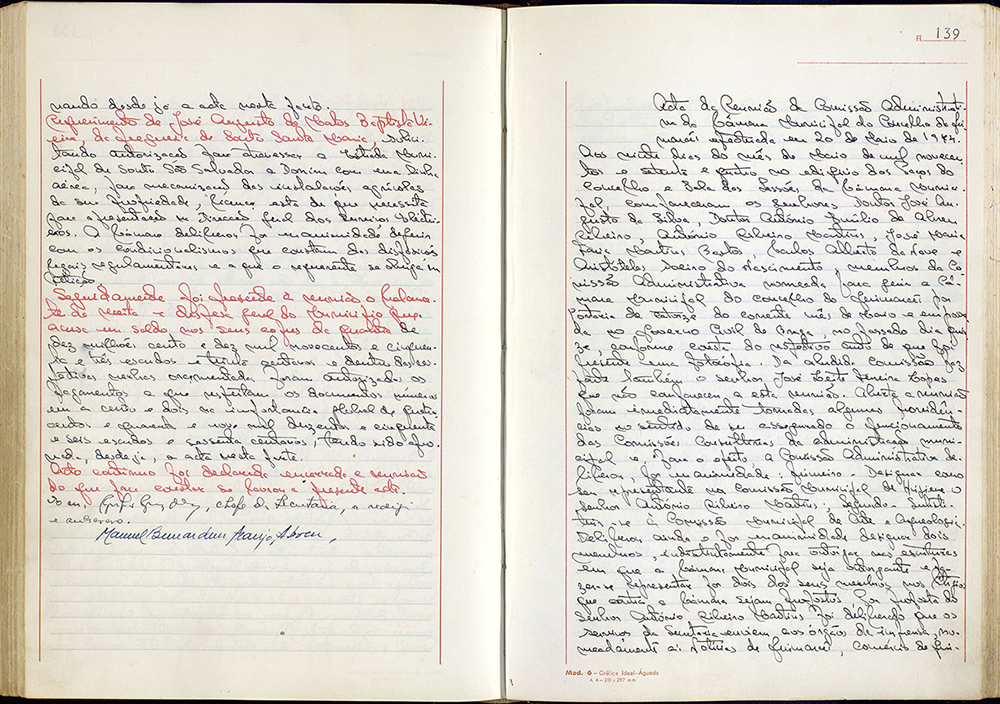 nando desde já a acta nesta parte.
Requerimento de José Augusto de Matos Baptista Vi-
eira, da freguesia de Souto Santa Maria, solici-
tando autorização para atravessar a Estrada Muni-
cipal de Souto São Salvador a Donim com uma Linha
aérea, para mecanização das instalações agrícolas
da sua propriedade, licença esta de que necessita
para apresentação na Direcção Geral dos Serviços Eléctri-
cos. A Câmara deliberou por unanimidade deferir
com os condicionalismos que constam das disposições
legais regulamentares e a que o requerente se obriga na
petição.
Seguidamente foi presente à reunião o balance-
te da receita e despesa geral do Município que
acusa um saldo nos seus cofres da quantia de
dez milhões cento e dez mil novecentos e cinquen-
ta e três escudos e trinta centavos e dentro das res-
pectivas verbas orçamentadas foram autorizados os
pagamentos a que respeitam os documentos números
um a cento e dois na importância global de quatro-
centos e quarenta e nove mil duzentos e cinquenta
e seis escudos e sessenta centavos, tendo sido apro-
vada, desde já, a acta nesta parte.
Acto contínuo foi declarada encerrada a reunião
do que para constar se lavrou a presente acta.
E eu, chefe da Secretaria, a redigi
e subscrevo.
Manuel Bernardino Araújo Abreu,
Fl. 139
Acta da Reunião da Comissão Administrati-
va da Câmara Municipal do Concelho de Gui-
marães efectuada em 20 de Maio de 1974.
Aos vinte dias do mês de Maio de mil novecen-
tos e setenta e quatro no edifício dos Paços do
Concelho e Sala das Sessões da Câmara Munici-
pal, compareceram os senhores Doutor José Au-
gusto da Silva, Doutor António Emílio de Abreu
Ribeiro, António Ribeiro Martins, José Maria
Martins Bastos, Carlos Alberto da e
Aristóteles do Nascimento, membros da Co-
missão Administrativa nomeada para gerir a Câ-
mara Municipal do concelho de Guimarães por
Portaria de catorze do corrente mês de Maio e empossa-
da no Governo Civil de Braga, no passado dia quin-
ze, conforme consta do respectivo auto de que foi
presente uma fotocópia. Da aludida Comissão faz
parte também o senhor José Leite Pereira Lopes
que não compareceu a esta reunião. Aberta a reunião
foram imediatamente tomadas algumas providên-
cias no sentido de ser assegurado o funcionamento
das Comissões Consultivas da administração muni-
cipal e para o efeito a Comissão Administrativa de-
liberou, por unanimidade: primeiro - Designar como
seu representante na Comissão Municipal de Higiene o
senhor António Ribeiro Martins; segundo - substi-
tuir-se à Comissão Municipal de Arte e Arqueologia.
Deliberou ainda e por unanimidade designar dois
membros, indistintamente para outorgar nas escrituras
em que a Câmara Municipal seja outorgante e fa-
zer-se representar por dois dos seus membros nos litígios
que contra a Câmara sejam propostos. Por proposta do
Senhor António Ribeiro Martins foi deliberado que os
serviços da Secretaria enviem aos órgãos de imprensa, no-
meadamente ao Notícias de Guimarães, Comércio de Gui-
Mod. 6 - Gráfica Ideal-Águeda
A 4 - 210 x 297 mm